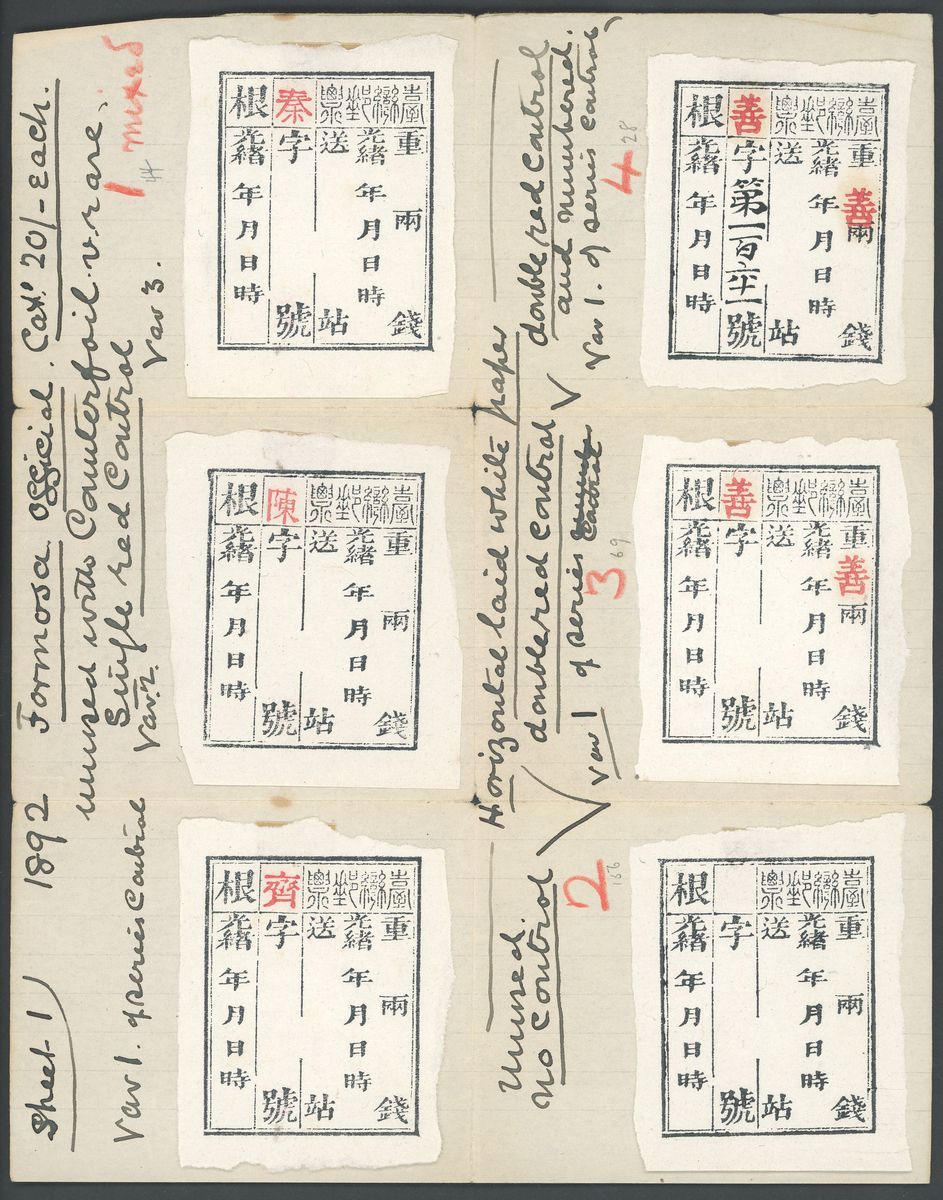 Sheet 1 1892 Formosa. Official. Catº 20/- each.
unused with Counterfoil. v. rare,
Single red Control
1 mixed
44
Var 1. of series Control
Var. 2.
Var 3.
Horizontal laid white paper
Unused
no Control
2
166
double red control
Var 1 of series Control
3
69
double red Control
and numbered.
Var 1. of series control
4
28
臺灣郵票
秦
根
重兩錢
光緒年月日時
送站
字號
光緒年月日時
臺灣郵票
善
根
重善兩錢
光緒年月日時
送站
字第一百六十一號
光緒年月日時
臺灣郵票
陳
根
重兩錢
光緒年月日時
送站
字號
光緒年月日時
臺灣郵票
善
根
重善兩錢
光緒年月日時
送站
字號
光緒年月日時
臺灣郵票
齊
根
重兩錢
光緒年月日時
送站
字號
光緒年月日時
臺灣郵票
根
重兩錢
光緒年月日時
送站
字號
光緒年月日時